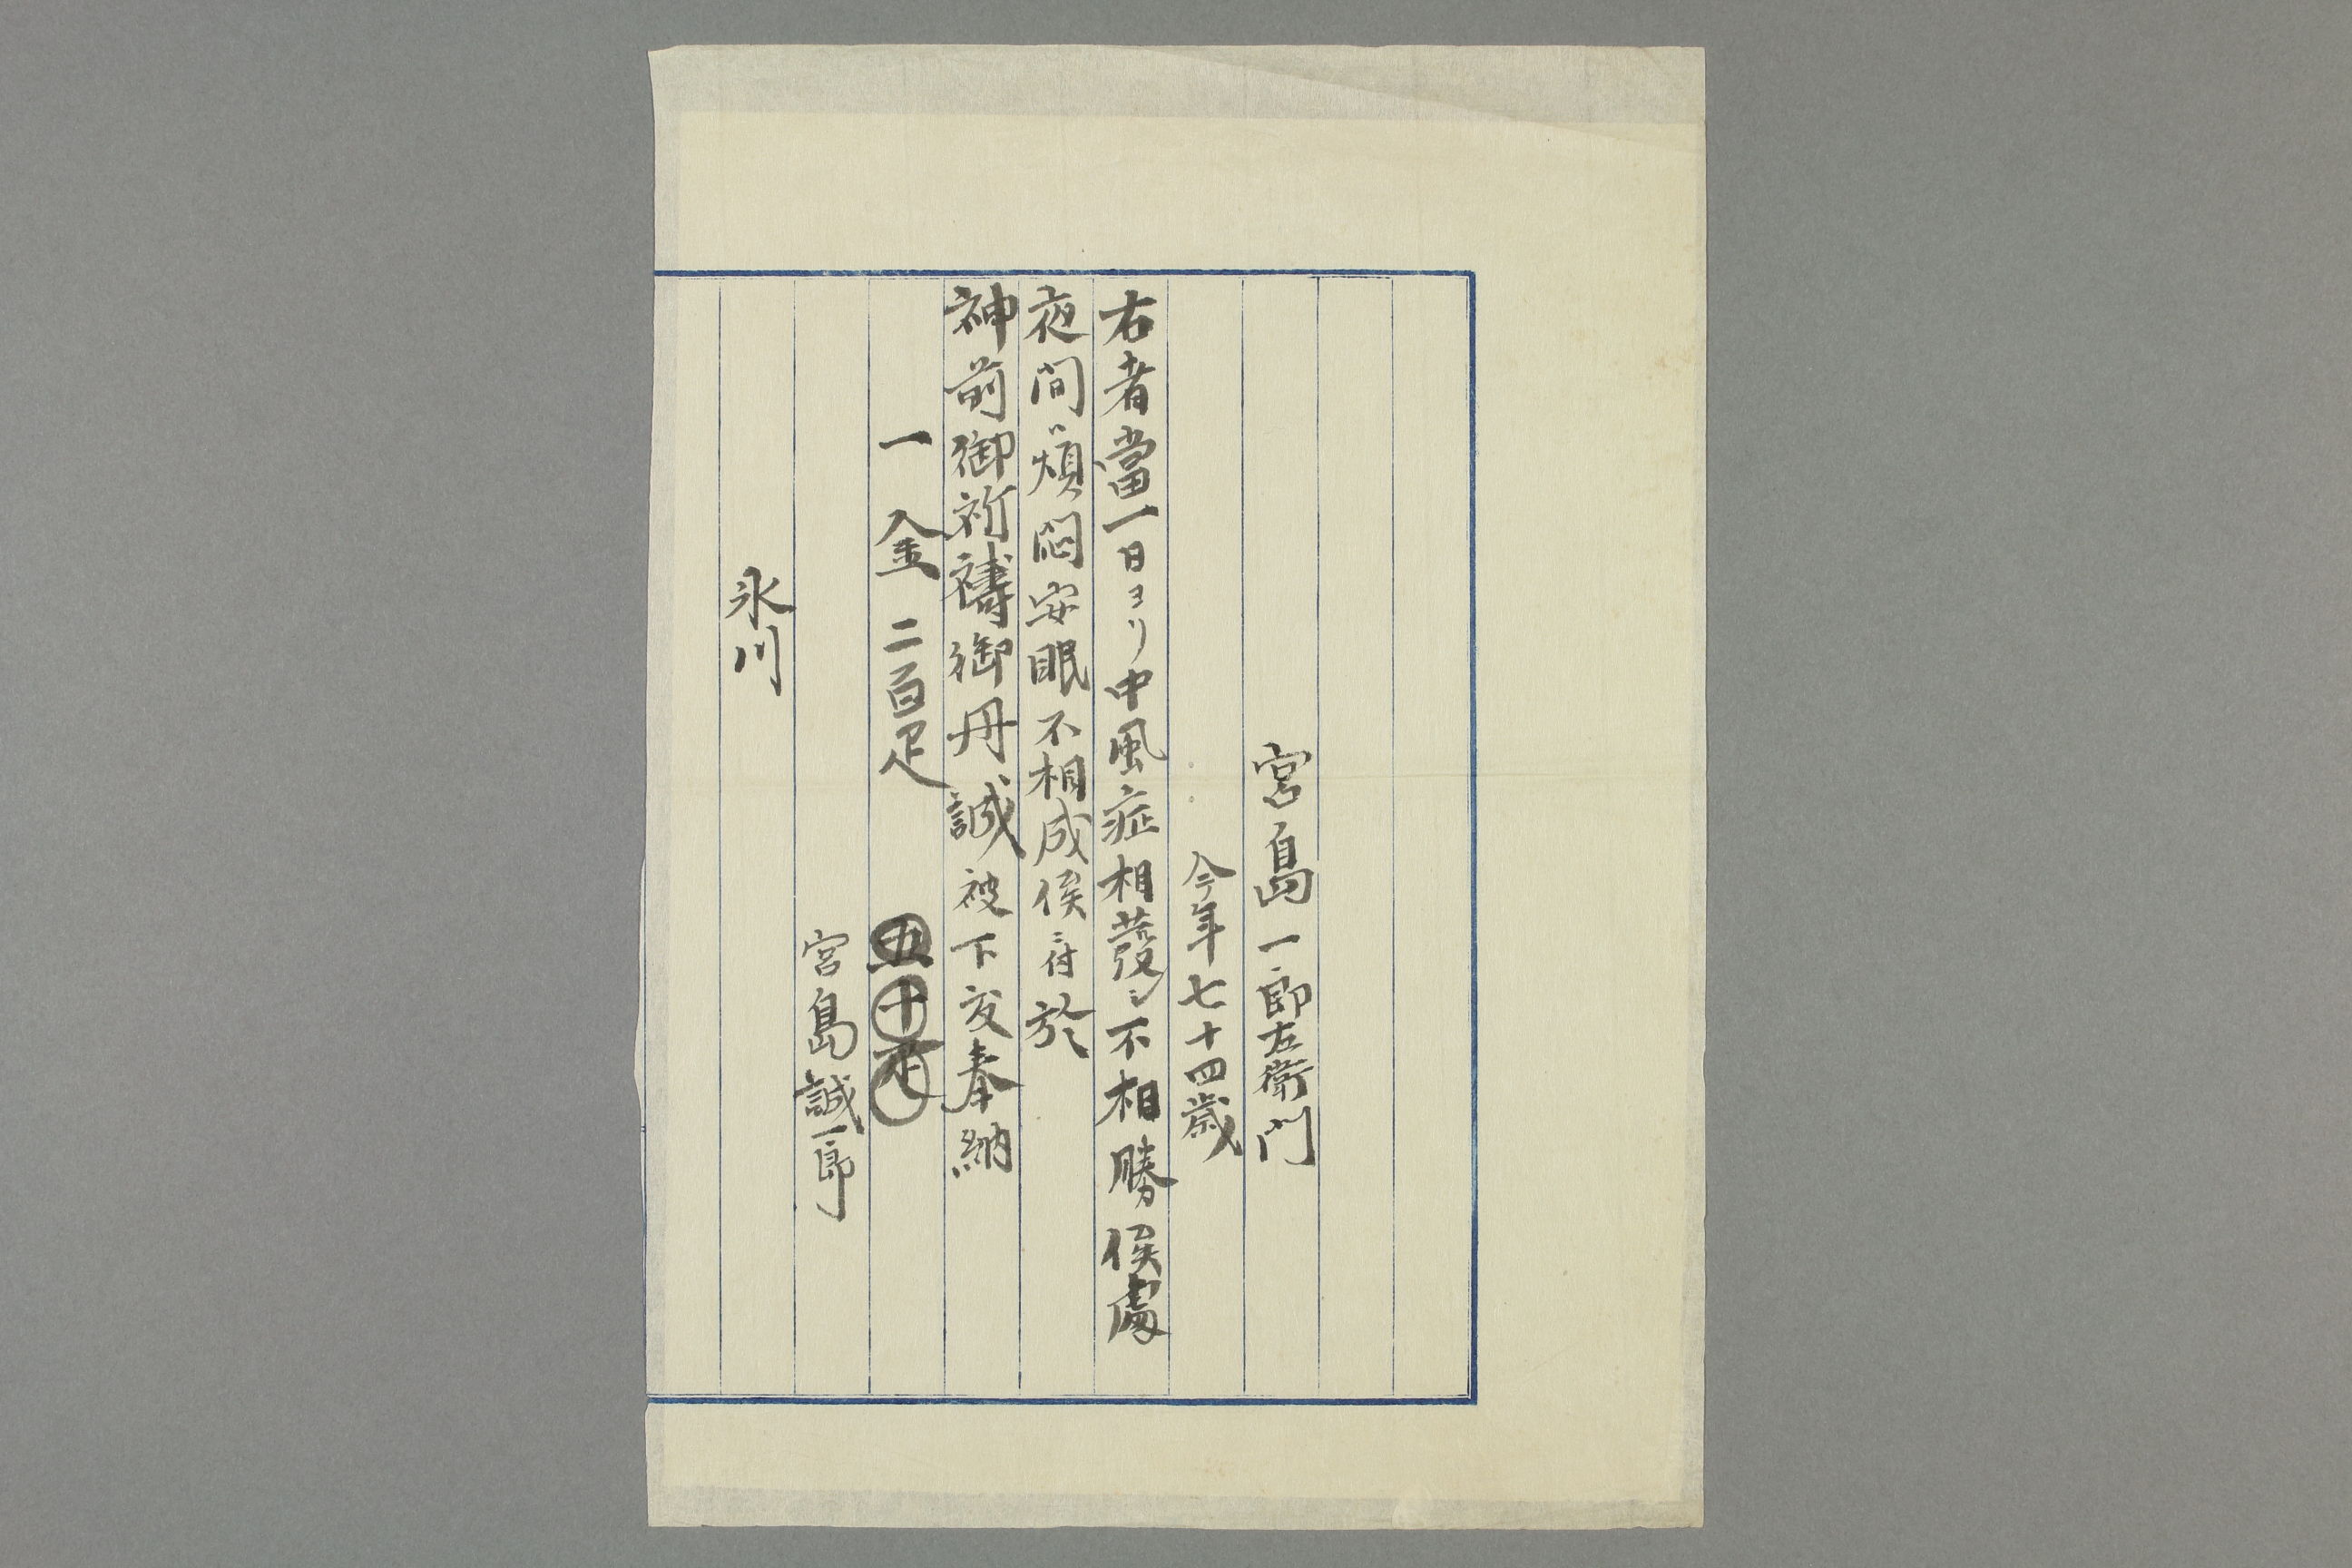 宮島一郎左衛門
今年七十四歳
右者當一日ヨリ中風症相發シ不相勝候處
夜間煩悶安眠不相成候ニ付於
神前御祈禱御丹誠被下度奉納
一金二百疋
宮島誠一郎
氷川